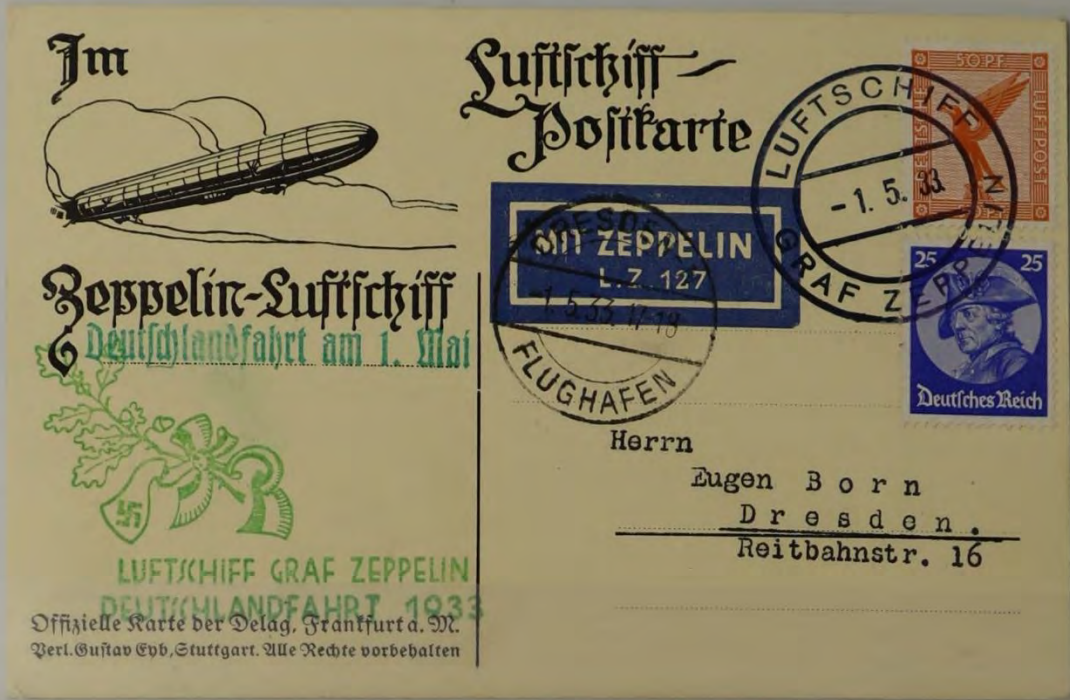 Im
Zeppelin-Luftschiff
Deutschlandfahrt am 1. Mai
LUFTSCHIFF GRAF ZEPPELIN
DEUTSCHLANDFAHRT 1933
Offizielle Karte der Delag, Frankfurt a. M.
Verl. Gustav Eyb, Stuttgart. Alle Rechte vorbehalten
Luftschiff-
Postkarte
MIT ZEPPELIN
L.Z. 127
DRESDEN
-1.5.33.17-18
FLUGHAFEN
LUFTSCHIFF
-1.5.33.
GRAF ZEPPELIN
50 PF
DEUTSCHE
LUFTPOST
25 25
Deutsches Reich
Herrn
Eugen Born
Dresden.
Reitbahnstr. 16